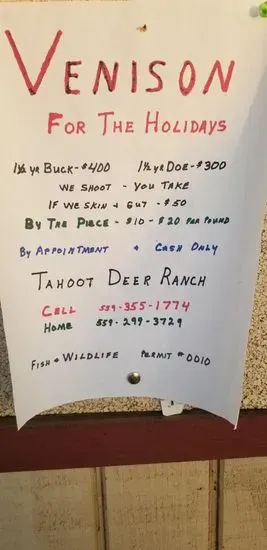 VENISON
FOR THE HOLIDAYS
1½ YR BUCK - $400 1½ YR DOE - $300
WE SHOOT - YOU TAKE
IF WE SKIN & GUT - $50
BY THE PIECE - $10 - $20 PER POUND
BY APPOINTMENT & CASH ONLY
TAHOOT DEER RANCH
CELL 559-355-1774
HOME 559-299-3729
FISH & WILDLIFE PERMIT #0010